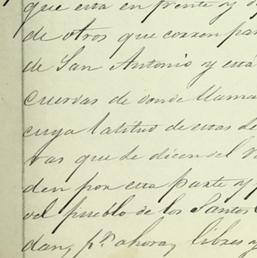 que esta en frente y
de otros que corren par
de San Antonio y está
cuerdas de donde llama
cuya latitud de unas de
vas que de dicen del
den por esta parte y
del pueblo de los Santos
dan, pr. ahora, libres y